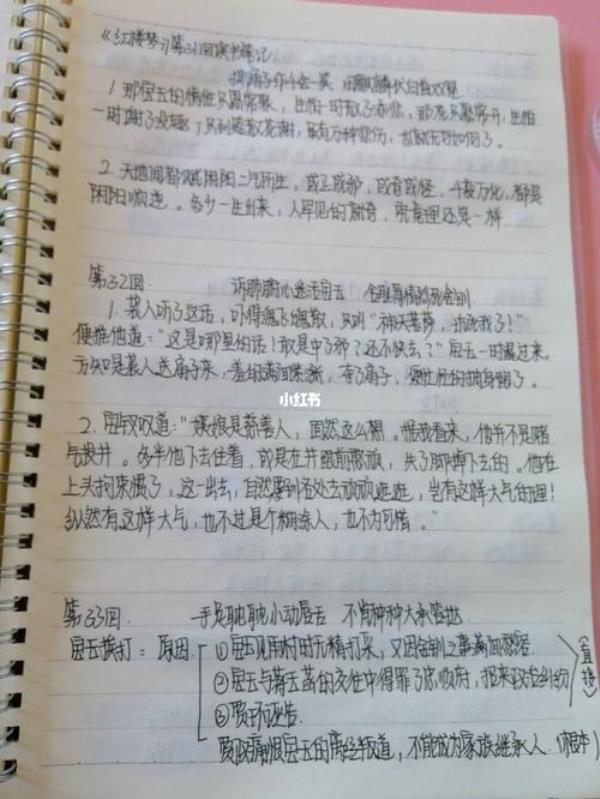 《红楼梦》第31回读书笔记
撕扇子作千金一笑 因麒麟伏白首双星
1. 那宝玉的情性只愿常聚，生怕一时散了添悲，那花只愿常开，生怕
一时谢了没趣；只到筵散花谢，虽有万种悲伤，也就无可如何了。
2. 天地间都赋阴阳二气所生，或正或邪，或奇或怪，千变万化，都是
阴阳顺逆。多少一生出来，人罕见的就奇，究竟理还是一样
第32回. 诉肺腑心迷活宝玉 含耻辱情烈死金钏
1. 袭人听了这话，吓得魄飞魂散，只叫"神天菩萨，坑死我了！"
便推他道："这是哪里的话！敢是中了邪？还不快去？"宝玉一时醒过来，
方知是袭人送扇子来，羞的满面紫涨，夺了扇子，便忙忙的抽身跑了。
小红书
2. 宝钗叹道："姨娘是慈善人，固然这么想。据我看来，他并不是赌
气投井。多半他下去住着，或是在井跟前憨顽，失了脚掉下去的。他在
上头拘束惯了，这一出去，自然要到各处去顽顽逛逛，岂有这样大气的理！
纵然有这样大气，也不过是个糊涂人，也不为可惜。"
第33回. 手足耽耽小动唇舌 不肖种种大承笞挞
宝玉挨打：原因 ①宝玉见雨村时无精打采，又因金钏之事满面愁容
②宝玉与蒋玉菡的交往中得罪了忠顺府，招来政治纠纷 (直接)
③贾环诬告.
贾政痛恨宝玉的离经叛道，不能成为家族继承人. (根本)